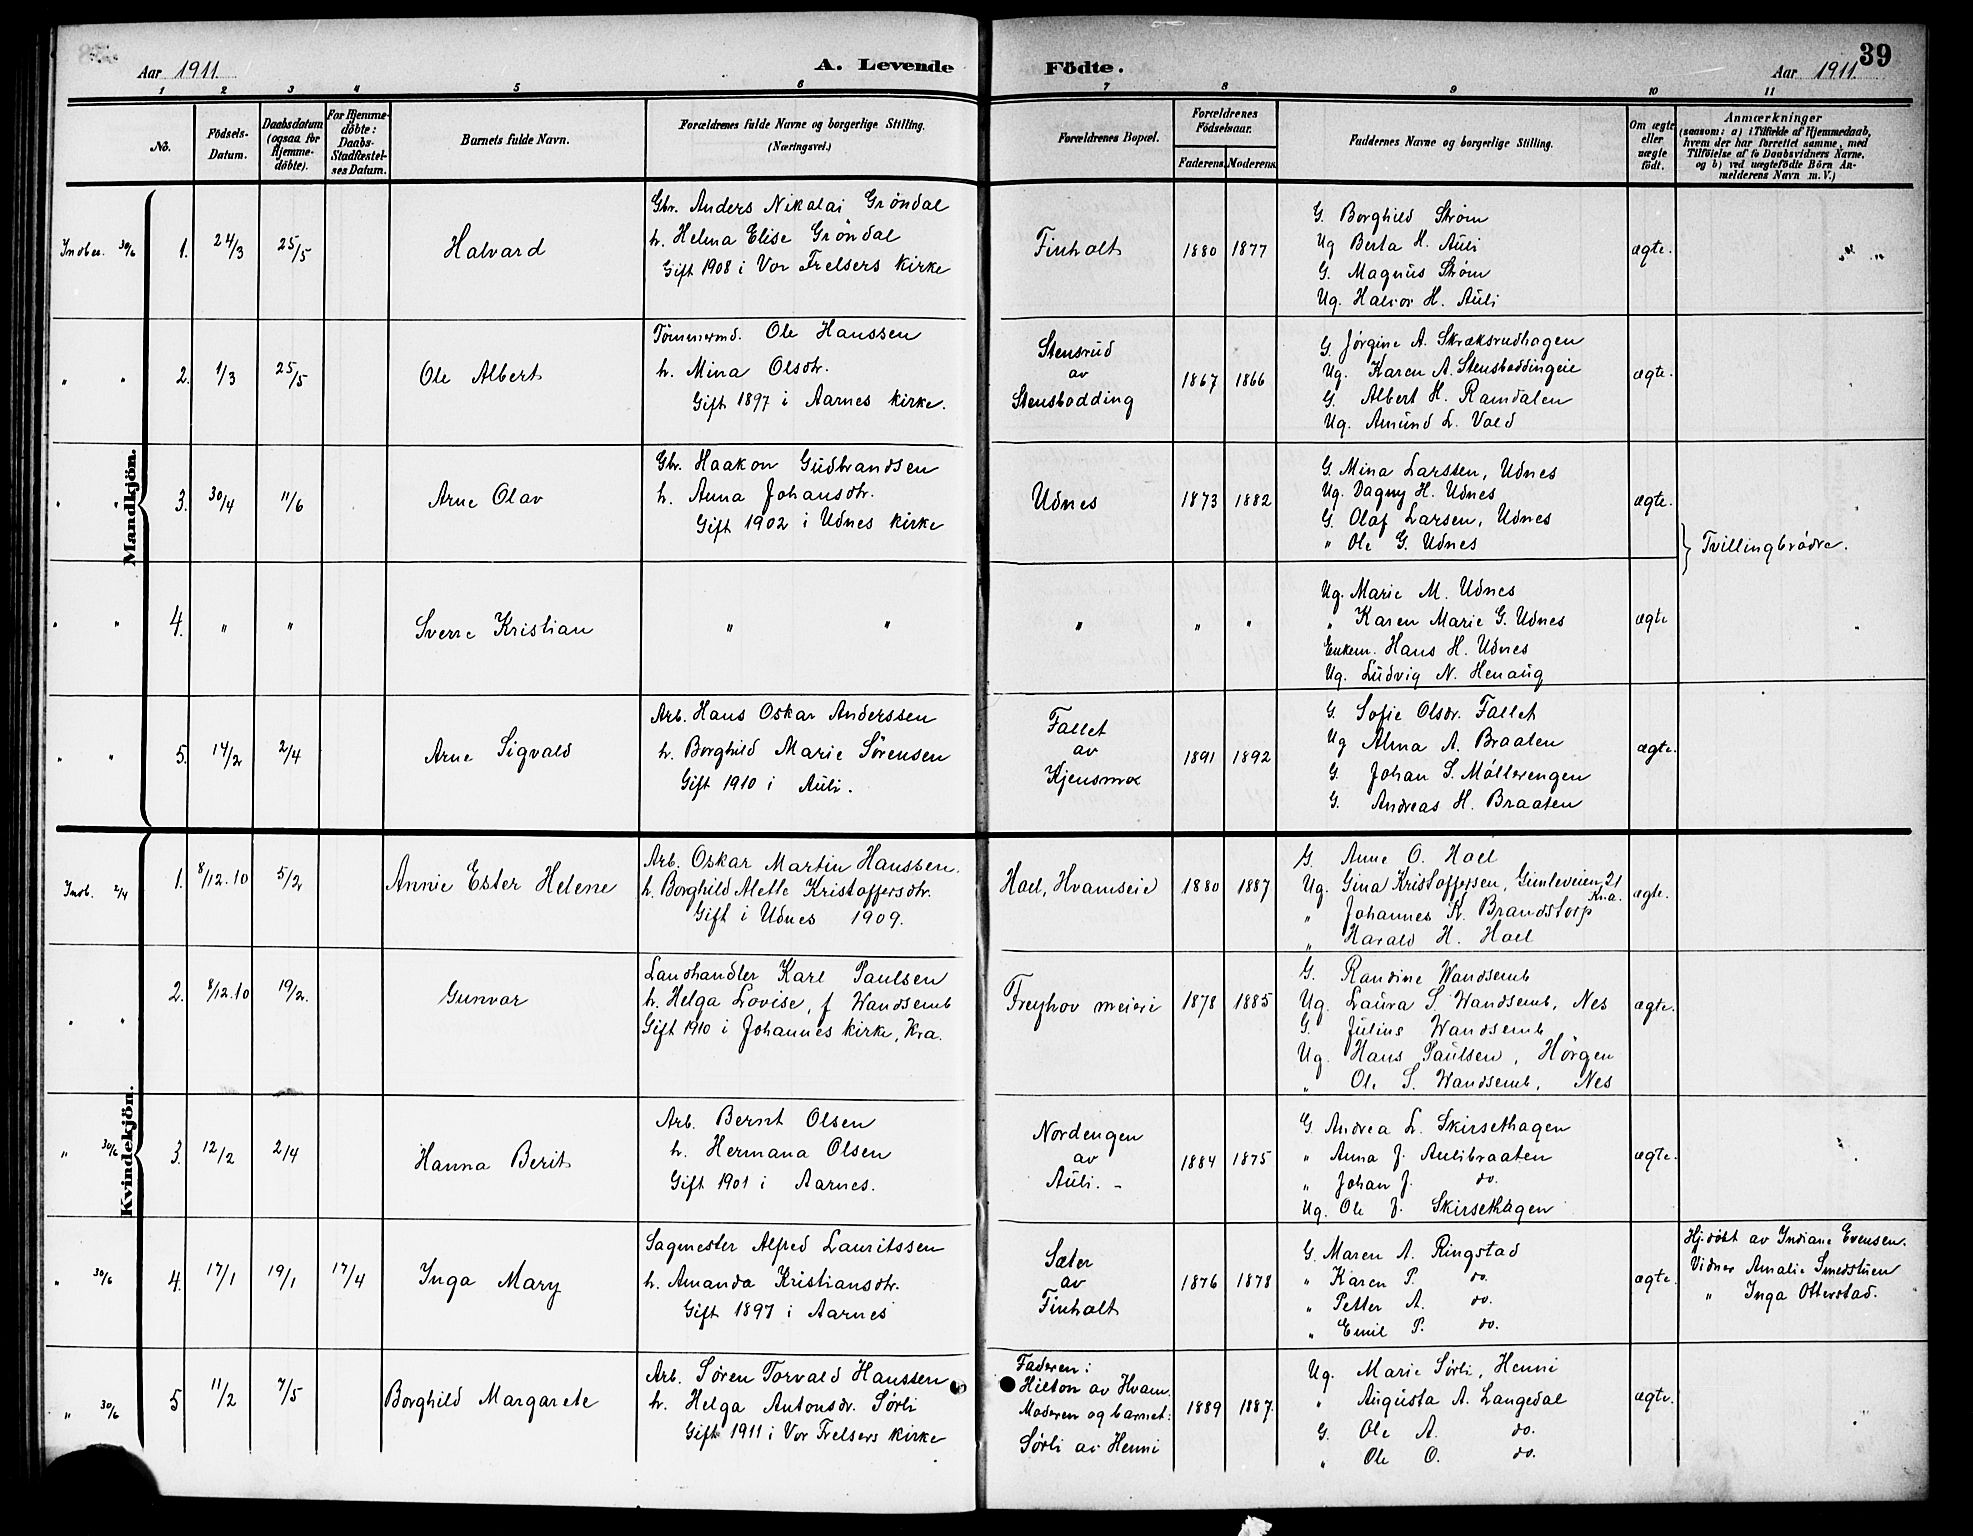 39
Aar 1911. A. Levende Födte. Aar 1911.
1 2 3 4 5 6 7 8 9 10 11
No.
Födsels-Datum.
Daabsdatum (ogsaa for Hjemme-döbte).
For Hjemme-döbte: Daabs-Stadfæstel-ses Datum.
Barnets fulde Navn.
Forældrenes fulde Navne og borgerlige Stilling. (Næringsvei.)
Forældrenes Bopæl.
Forældrenes Födselsaar.
Faderens. Moderens.
Faddernes Navne og borgerlige Stilling.
Om ægte eller uægte födt.
Anmærkninger
(saasom: a) i Tilfælde af Hjemmedaab,
hvem der har forrettet samme, med
Tilföielse af to Daabsvidners Navne,
og b) ved uægtefödte Börn An-
melderens Navn m. V.)
Mandkjön.
Indber. 30/6 1. 24/3 25/5 Halvard
Gbr. Anders Nikolai Grøndal
h. Helma Elise Grøndal
Gift 1908 i Vor Frelsers Kirke
Finholt 1880 1877
G. Borghild Strøm
Ug Berta H. Auli
G. Magnus Strøm
Ug. Halvor H. Auli
ægte.
" " 2. 1/3 25/5 Ole Albert
Tømmermd. Ole Hanssen
h. Mina Olsdtr.
Gift 1897 i Aarnes Kirke.
Stensrud
av
Stensbodding
1867 1866
G. Jørgine A. Skræksrudhagen
Ug. Karen A. Stensboddingeie
G. Albert H. Ramdalen
Ug. Amund L. Vold
ægte.
" " 3. 30/4 11/6 Arne Olav
Gbr. Haakon Gudbrandsen
h. Anna Johansdtr.
Gift 1902 i Udnes Kirke
Udnes 1873 1882
G. Mina Larssen, Udnes
Ug. Dagny H. Udnes
G. Olaf Larsen, Udnes
" Ole G. Udnes
ægte.
} Tvillingbrødre.
" " 4. " " Sverre Kristian " " " " "
Ug. Marie M. Udnes
" Karen Marie G. Udnes
Enkem. Hans H. Udnes
Ug. Ludvig N. Henaug
ægte
" " 5. 14/2 2/4 Arne Sigvald
Arb. Hans Oskar Anderssen
h. Borghild Marie Sörensen
Gift 1910 i Auli.
Fallet
av
Kjensmo
1891 1892
G. Sofie Olsdr. Fallet
Ug Alma A. Braaten
G. Johan S. Möllerengen
G. Andreas H. Braaten
ægte.
Kvindekjön.
Indb. 2/4 1. 8/12.10 5/2 Annie Ester Helene
Arb. Oskar Martin Hanssen.
h. Borghild Alette Kristoffersdtr.
Gift i Udnes 1909.
Hoel, Hvamseie 1880 1887
G. Anne O. Hoel
Ug. Gina Kristoffersen, Gimleveien 21 Kra.
" Johannes K. Brandstorp
" Harald H. Hoel
ægte.
" " 2. 8/12.10 19/2. Gunvor
Landhandler Karl Paulsen
h. Helga Lovise, f Wandsemb
Gift 1910 i Johannes Kirke, Kra.
Freyhov meieri 1878 1885
G. Randine Wandsemb
Ug. Laura S. Wandsemb, Nes
G. Julius Wandsemb
Ug. Hans Paulsen, Hörgen
" Ole S. Wandsemb, Nes
ægte.
" 30/6 3. 12/2 2/4 Hanna Berit
Arb. Bernt Olsen
h. Hermana Olsen
Gift 1901 i Aarnes.
Nordengen
av
Auli. -
1884 1875
G. Andrea L. Skirsethagen
" Anna J. Aulibraaten
" Johan J. do.
Ug. Ole J. Skirsethagen
ægte.
" 30/6 4. 17/1 19/1 17/4 Inga Mary
Sagmester Alfred Lauritssen
h. Amanda Kristiansdtr.
Gift 1897 i Aarnes
Sæter
av
Finholt
1876 1878
G. Maren A. Ringstad
" Karen P. do.
" Petter A. do.
" Emil P. do.
ægte.
Hj.döbt av Indiane Evensen.
Vidner Amalie Smedstuen
" Inga Otterstad.
" 30/6 5 11/2 7/5 Borghild Margarete
Arb. Søren Torvald Hanssen
h. Helga Antonsdr. Sørli
Gift 1911 i Vor Frelsers Kirke
Faderen:
Hielton av Hvam.
Moderen og barnet:
Sørli av Henni
1889 1887.
Ug. Marie Sørli, Henni
" Augusta A. Langedal
G. Ole A. do.
" Ole O. do.
ægte.